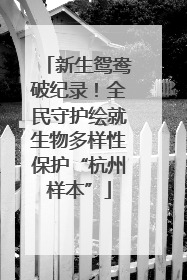 「新生鸳鸯
破纪录！全
民守护绘就
生物多样性
保护“杭州
样本”」